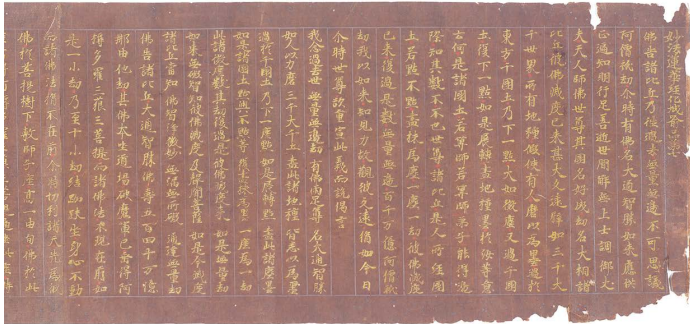 妙法蓮華經化城喻品第
佛告諸比丘乃往過去無量無邊不可思議
阿僧祇劫尒時有佛名大通智勝如來應供
正遍知明行足善逝世間解無上士調御丈
夫天人師佛世尊其國名好成劫名大相諸
比丘彼佛滅度已來甚大久遠譬如三千大
千世界所有地種假使有人磨以為墨過於
東方千國土乃下一點大如微塵又過千國
土復下一點如是展轉盡地種墨於汝等意
云何是諸國土若筭師若筭師弟子能得邊
際知其數不不也世尊諸比丘是人所經國
土若點不點盡抹為塵一塵一劫彼佛滅度
已來復過是數無量無邊百千万億阿僧祇
劫我以如來知見力故觀彼久遠猶如今日
尒時世尊欲重宣此義而說偈言
我念過去世 無量無邊劫 有佛兩足尊 名大通智勝
如人以力磨 三千大千土 盡此諸地種 皆悉以為墨
過於千國土 乃下一塵點 如是展轉點 盡此諸塵墨
如是諸國土 點與不點等 復盡抹為塵 一塵為一劫
此諸微塵數 其劫復過是 彼佛滅度來 如是無量劫
如來無礙智 知彼佛滅度 及聲聞菩薩 如見今滅度
諸比丘當知 佛智淨微妙 無漏無所礙 通達無量劫
佛告諸比丘大通智勝佛壽五百四十万億
那由他劫其佛本坐道場破魔軍已垂得阿
耨多羅三藐三菩提而諸佛法不現在前如
是一小劫乃至十小劫結跏趺坐身心不動
而諸佛法猶不在前尒時忉利諸天先為彼
佛於菩提樹下敷師子座高一由旬佛於此